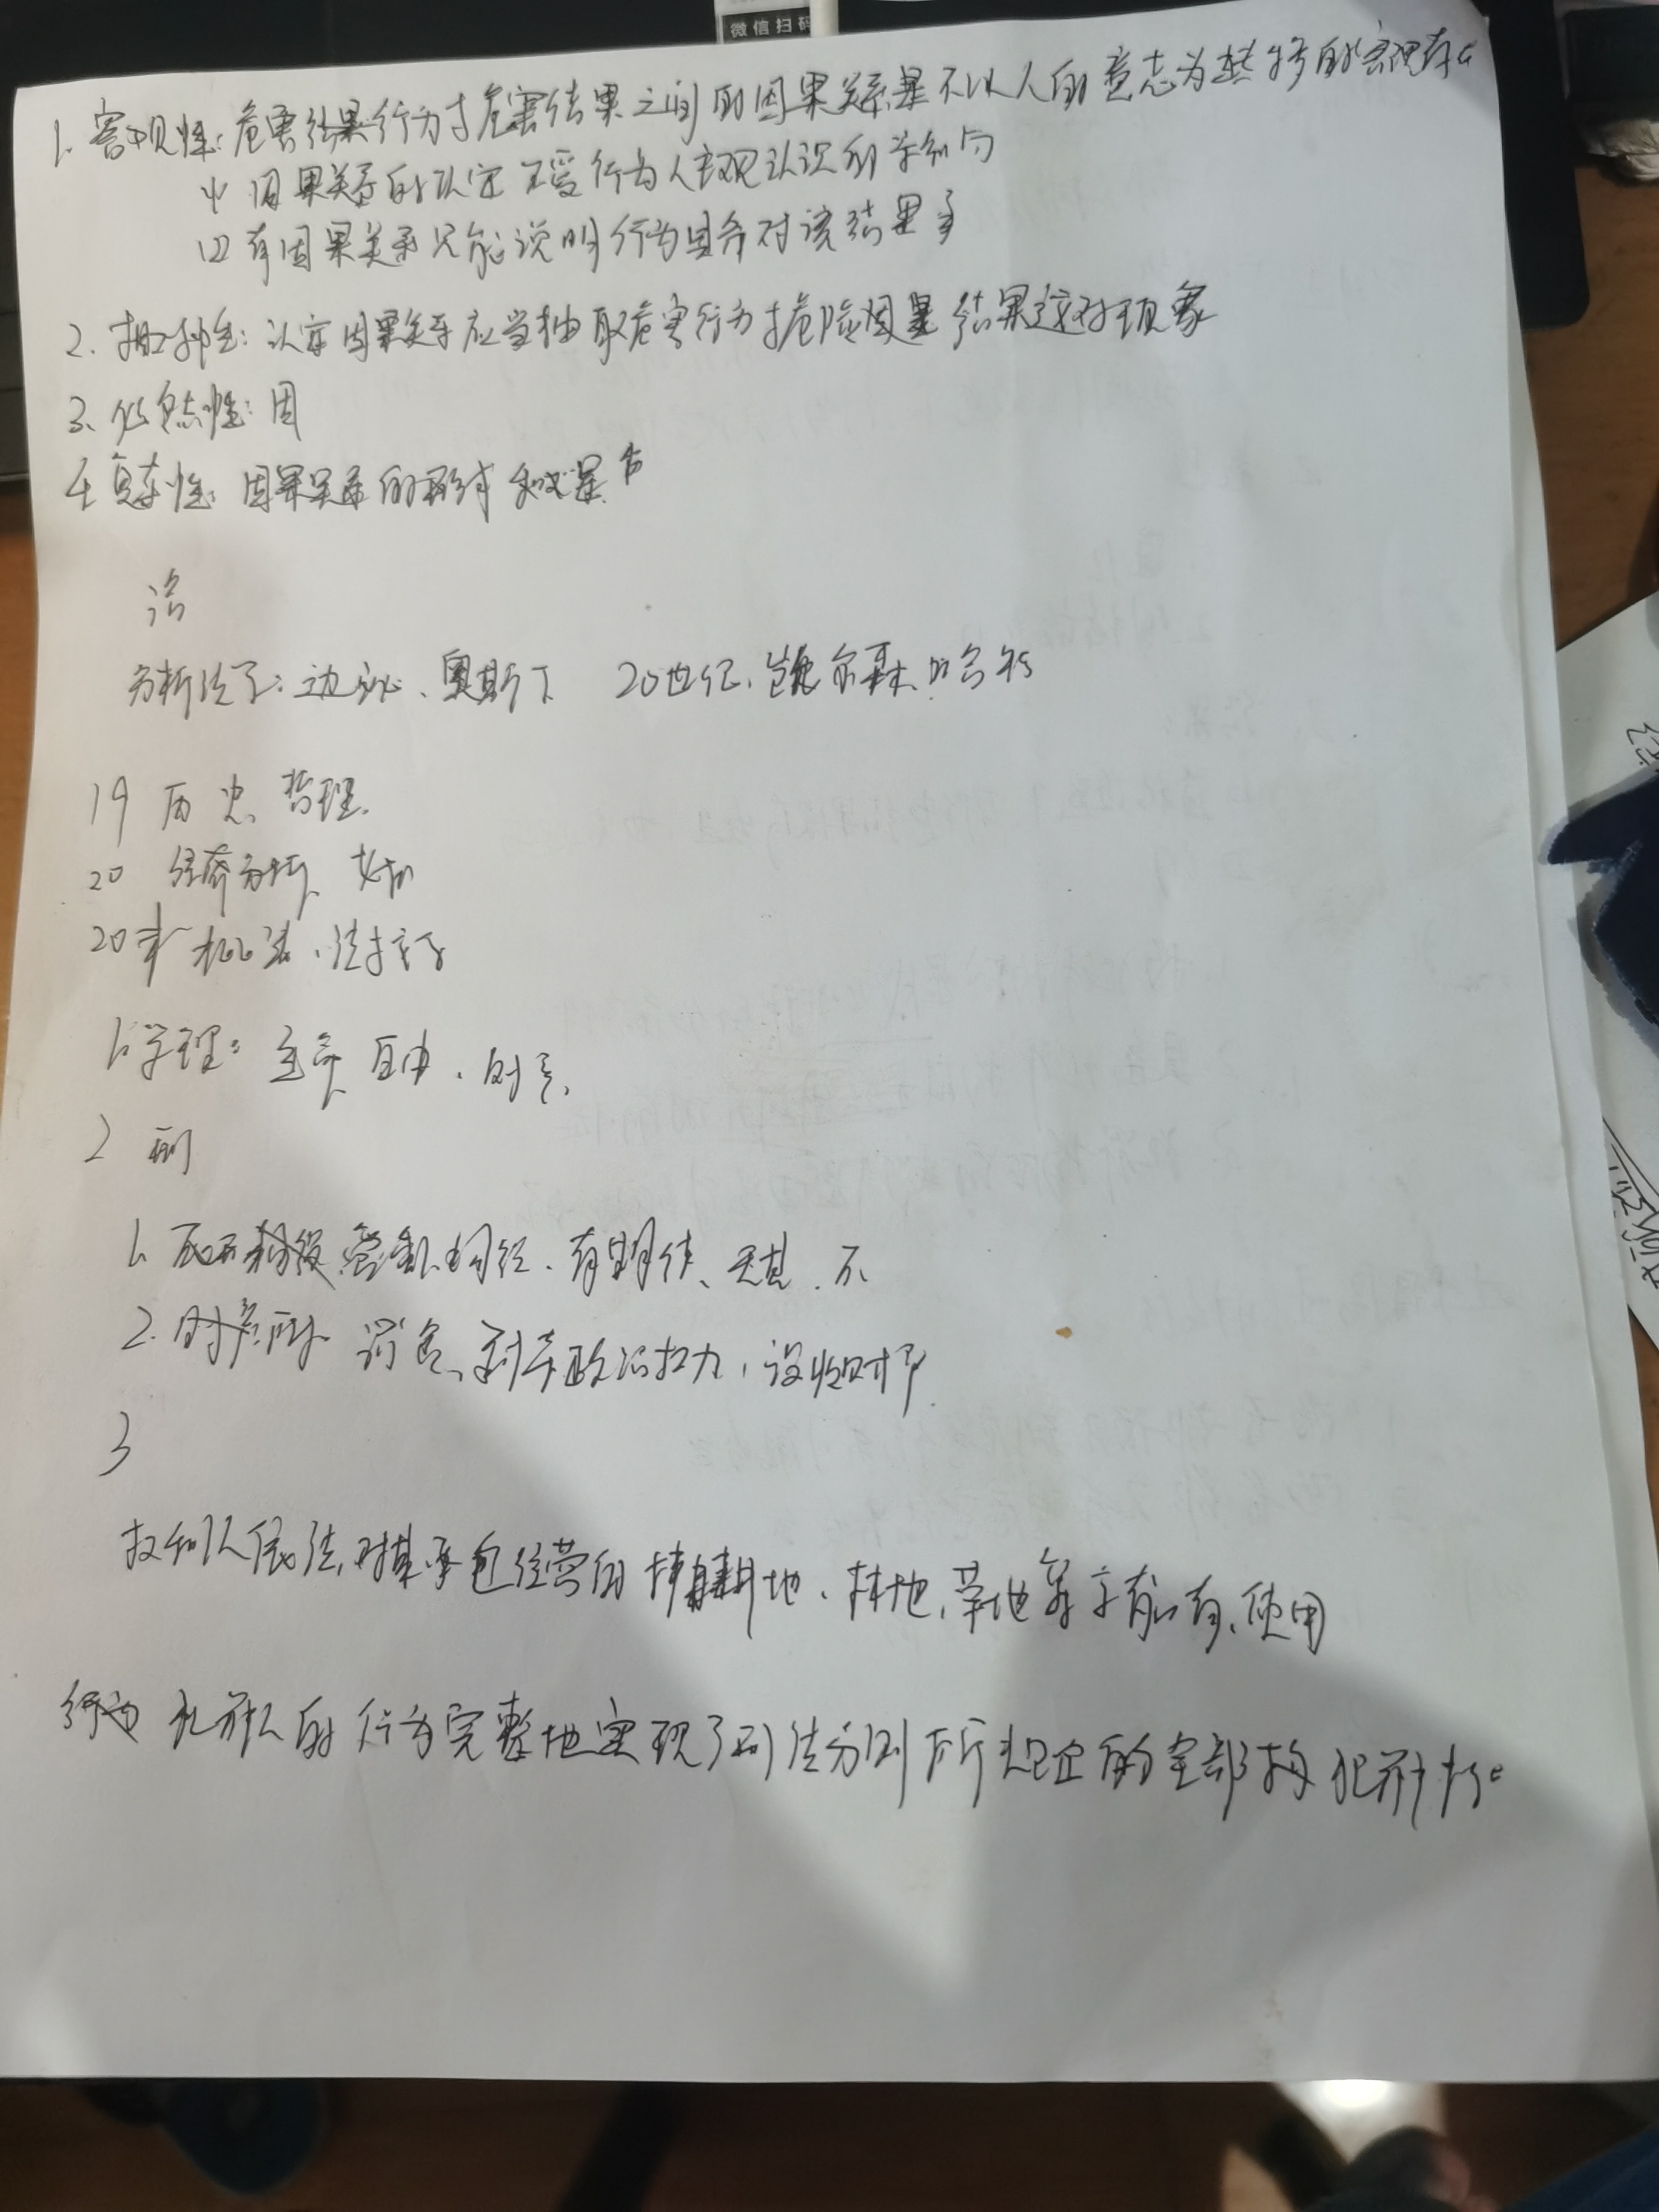 微信扫码
1. 客观性: 危害结果行为与危害结果之间的因果关系是不以人的意志为转移的客观存在
(1) 因果关系的认定不受行为人主观认识的影响
(2) 有因果关系只能说明行为具备对该结果
2. 相对性: 认定因果关系应当抽取危害行为与危险因果结果这对现象
3. 必然性: 因
4. 复杂性: 因果关系的形成
治
分析法学: 边沁、奥斯丁 20世纪: 凯尔森、哈特
19 历史、哲理
20 经济分析、女权
20末 批法、法
1. 学理: 生命、自由、财产、
2 刑
1. 死刑 管制、拘役、有期徒、无期、死
2. 财产刑 罚金、剥夺政治权力、没收财产
3
权利人依法对其承包经营的耕地、林地、草地等享有占有、使用
行为 犯罪人的行为完整地实现了刑法分则所规定的全部构 犯罪